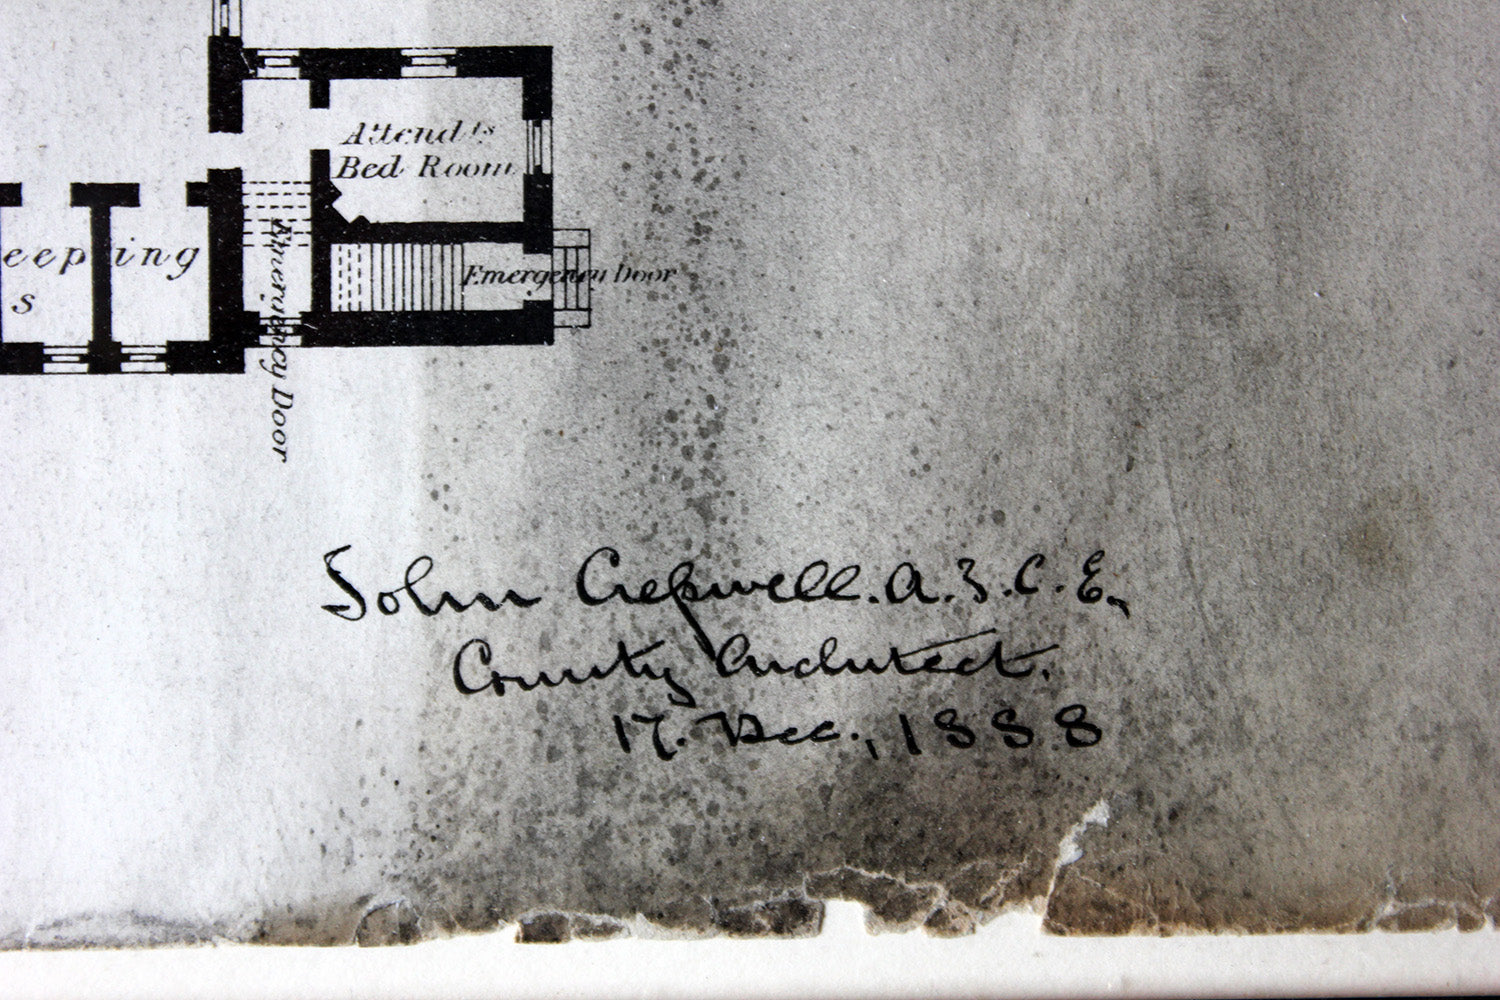 Attend.ts
Bed Room
eeping
s
Emergency Door
Emergency Door
John Creswell. A.I.C.E.
County Architect.
17. Dec., 1888